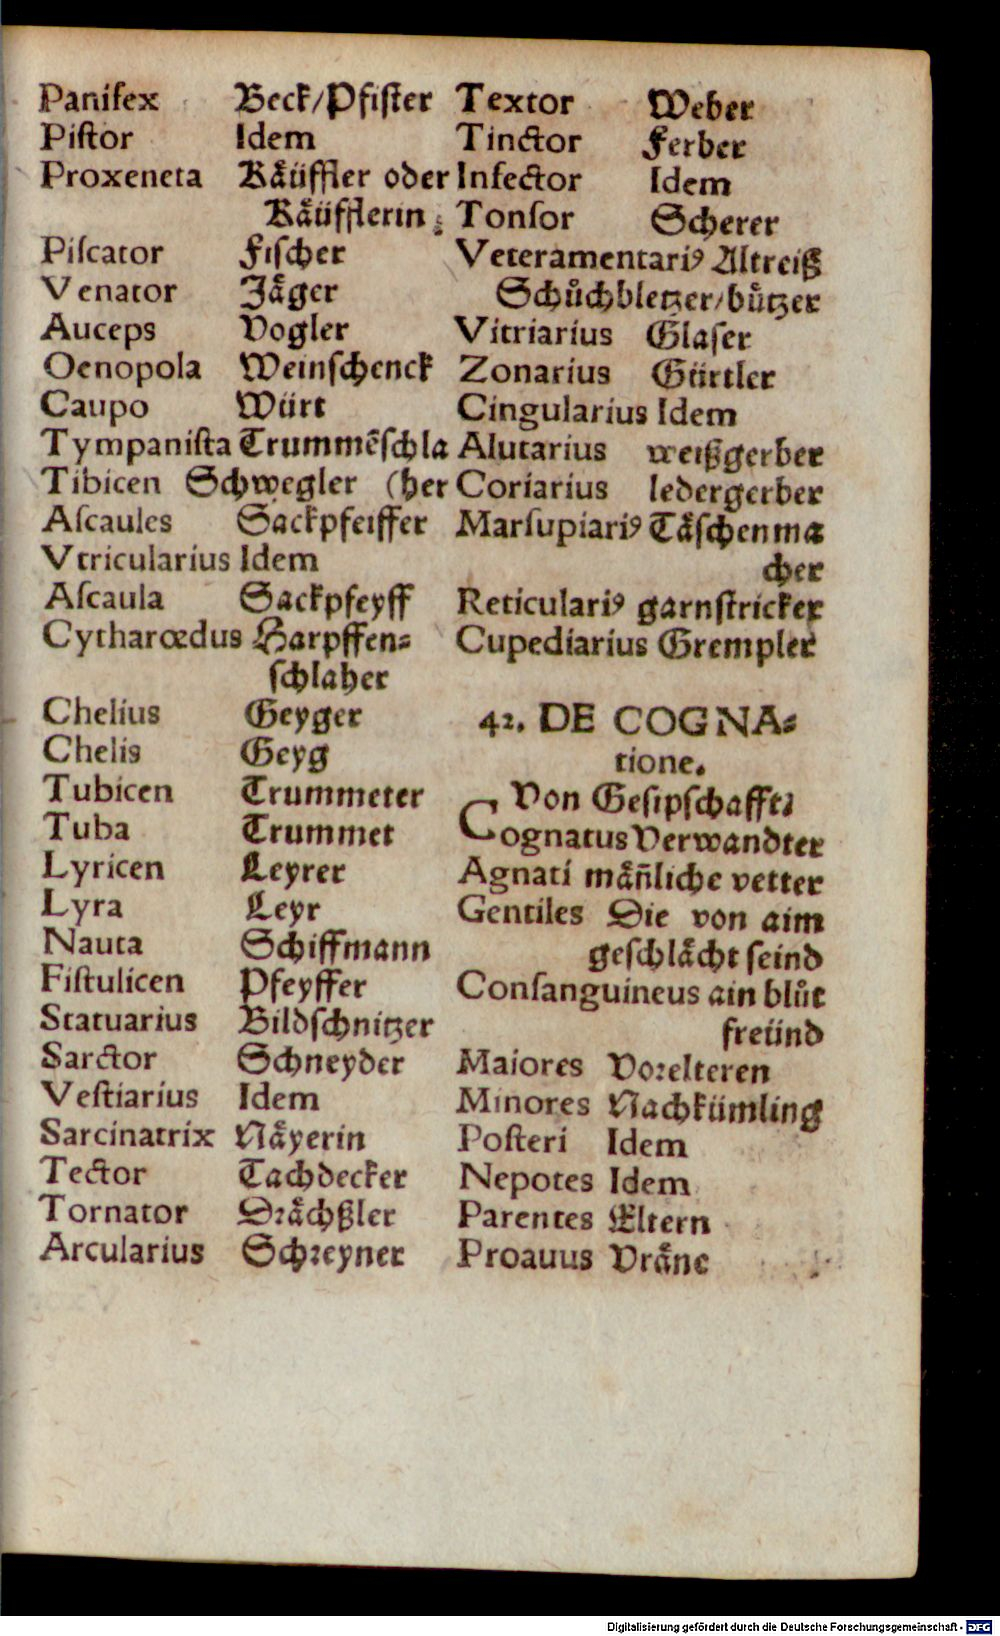 Panifex Beck/Pfister
Pistor Idem
Proxeneta Käüffler oder
Käüfflerin
Piscator Fischer
Venator Jäger
Auceps Vogler
Oenopola Weinschenck
Caupo Würt
Tympanista Trummẽschla
Tibicen Schwegler (her
Ascaules Sackpfeiffer
Vtricularius Idem
Ascaula Sackpfeyff
Cytharœdus Harpffen⸗
schlaher
Chelius Geyger
Chelis Geyg
Tubicen Trummeter
Tuba Trummet
Lyricen Leyrer
Lyra Leyr
Nauta Schiffmann
Fistulicen Pfeyffer
Statuarius Bildschnitzer
Sarctor Schneyder
Vestiarius Idem
Sarcinatrix Näyerin
Tector Tachdecker
Tornator Drächßler
Arcularius Schreyner
Textor Weber
Tinctor Ferber
Infector Idem
Tonsor Scherer
Veteramentariꝰ Altreiß
Schůchbletzer/bützer
Vitriarius Glaser
Zonarius Gürtler
Cingularius Idem
Alutarius weißgerber
Coriarius ledergerber
Marsupiariꝰ Täschenma
cher
Reticulariꝰ garnstricker
Cupediarius Grempler
42. DE COGNA⸗
tione.
Von Gesipschafft.
Cognatus Verwandter
Agnati män̄liche vetter
Gentiles Die von aim
geschlächt seind
Consanguineus ain blůt
freünd
Maiores Vorelteren
Minores Nachkümling
Posteri Idem
Nepotes Idem
Parentes Eltern
Proauus Vräne
Digitalisierung gefördert durch die Deutsche Forschungsgemeinschaft - DFG